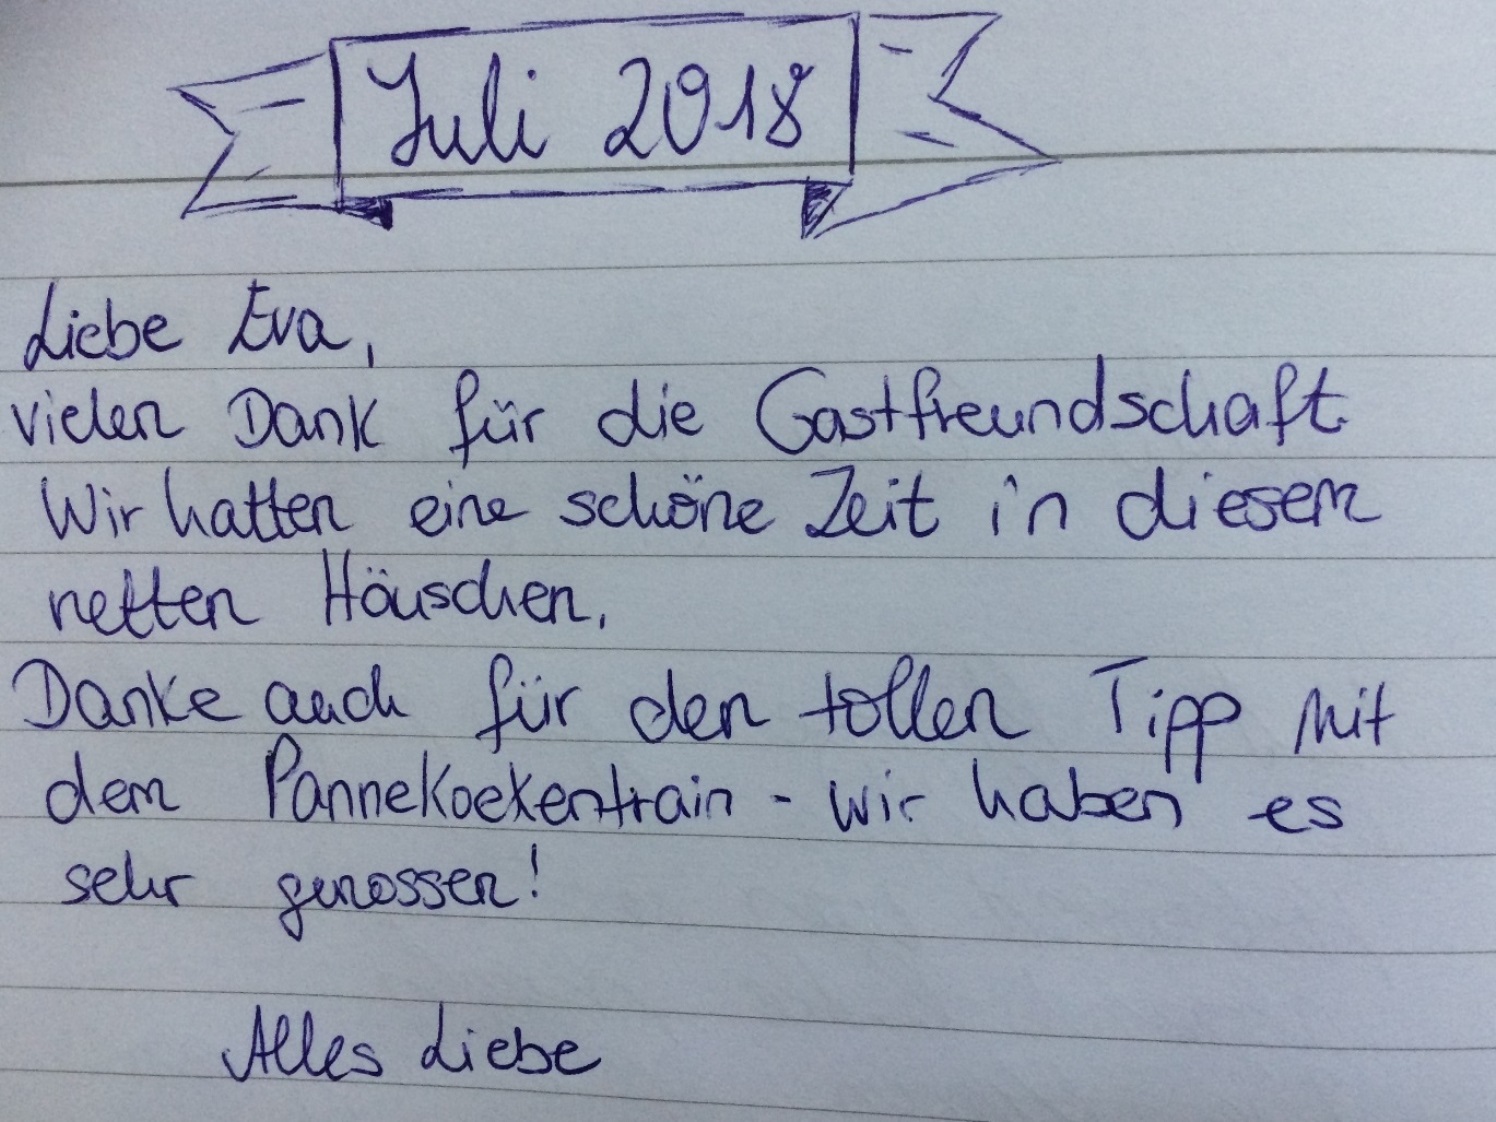 Juli 2018
Liebe Eva,
vielen Dank für die Gastfreundschaft.
Wir hatten eine schöne Zeit in diesem
netten Häuschen.
Danke auch für den tollen Tipp mit
dem Pannekoekentrain - wir haben es
sehr genossen!
Alles Liebe